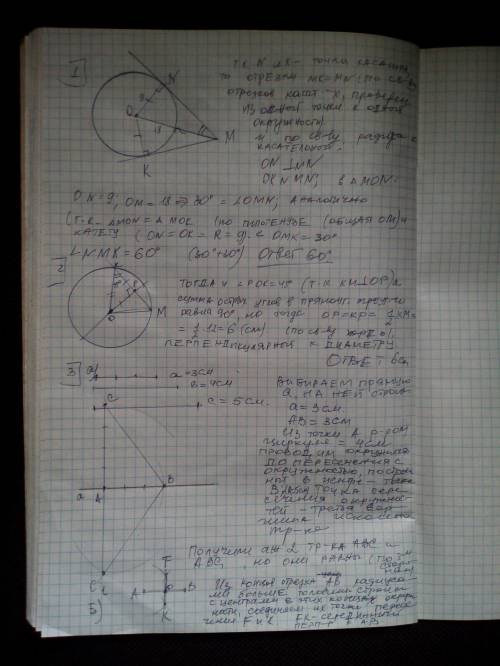 1
N
O
9
18
M
K
т.к. N и К - точки касания,
то отрезки MK = MN (по св-ву
отрезков касат-х, проведен
из одной точки к одной
окружности)
и по св-ву радиуса к
касательной.
ON ⊥ MN
в ΔMON.
ON = 9; OM = 18 ⇒ 30° = ∠OMN; Аналогично
(т.к. ΔMON = ΔMOK (по гипотенузе (общая OM) и
катету (ON = OK = R = 9. ∠OMK = 30°
∠NMK = 60° (30°+30°) Ответ 60°
2
K
P
O
M
Тогда и ∠POK = 45° (т.к. KM⊥OP) и
сумма острых углов в прямоуг. треуг-ке
равна 90°, но тогда OP = KP = 1/2 KM =
= 1/2 · 12 = 6 (см) (по св-ву
перпендикулярной к диаметру
Ответ 6см
3
a = 3см
b = 4см
c = 5см.
C
a
A
B
C1
Выбираем прямую
a, на ней отрезок
a = 3см.
AB = 3см
Из точки A р-ром
циркуля = 4см
проводим окружность
до пересечения с
окружностью, построен
ной в центре - точке
B. Точка пере-
сечения окружнос-
тей - третья вер-
шина искомого
тр-ка
Получили 2 тр-ка ABC и
ABC1 но они равны (по 3м
сторонам)
5)
F
A
O
B
K
Из концов отрезка AB радиуса-
ми больше половины строим
с центрами в этих концах окруж
ности, соединяем их точки пересе
чения F и K. FK - серединный
перп-р к AB